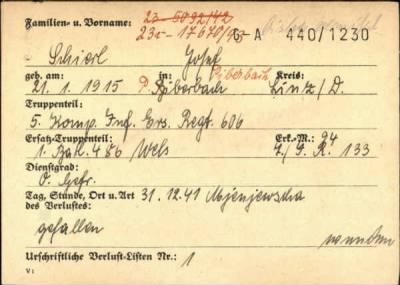 23-5092/42
Familien- u. Vorname: 23a-17670/ G A 440/1230
Schierl Josef Piberbach
geb. am: in: Kreis:
21.1.1915 Piberbach Linz/D.
Truppenteil:
5. Komp. Inf. Ers. Regt. 606
Ersatz-Truppenteil: Erk.-M.: 94
1. Bat. 486 Wels I.R. 133
Dienstgrad:
O. Gefr.
Tag, Stunde, Ort u. Art 31.12.41
des Verlustes:
gefallen
Urschriftliche Verlust-Listen Nr.: 1
V1